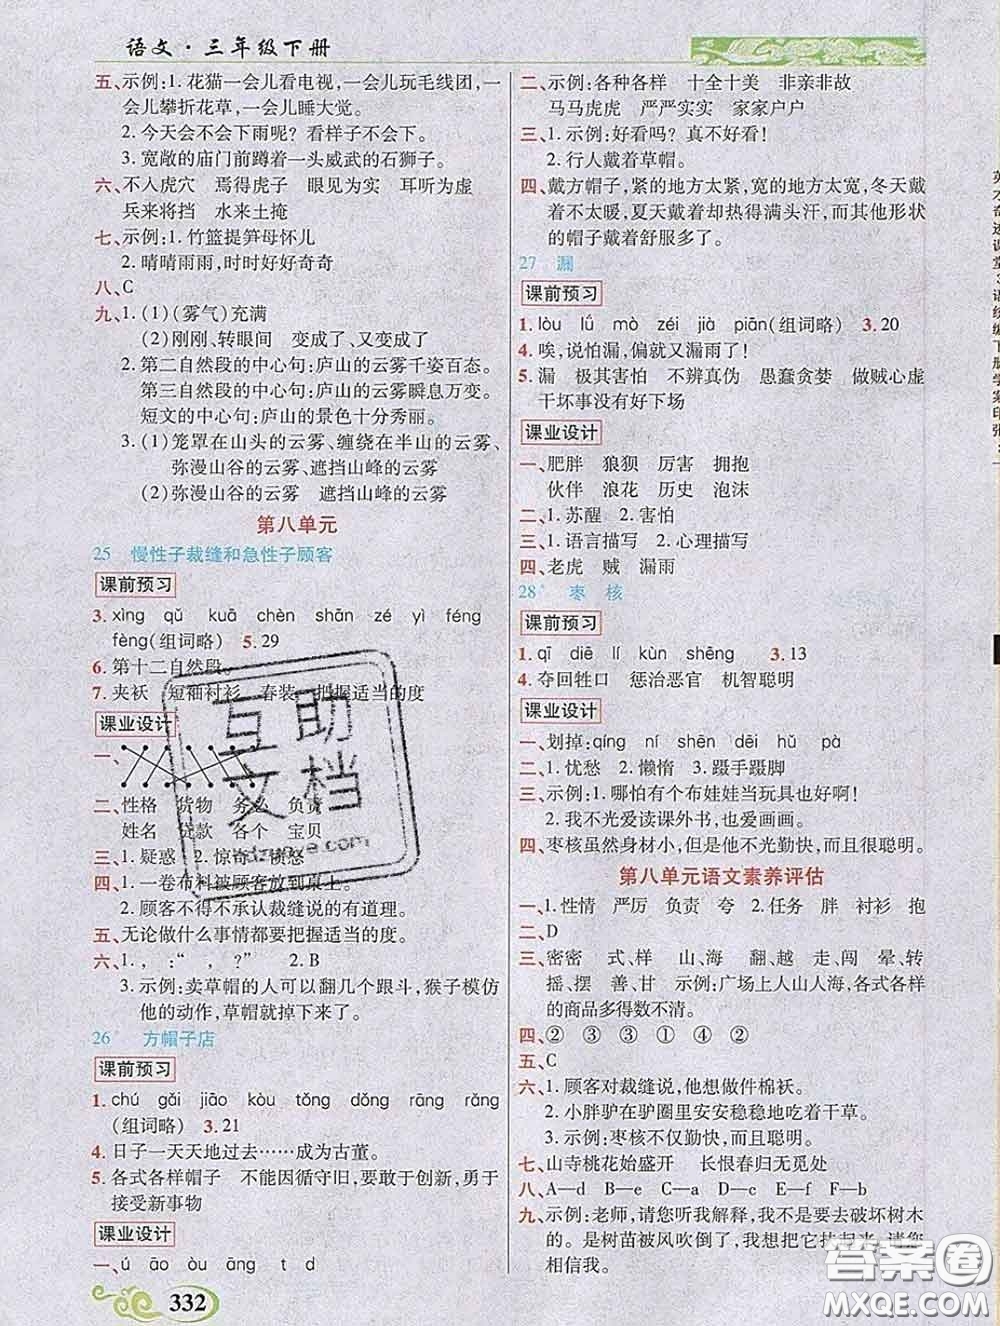 语文·三年级下册
五、示例:1. 花猫一会儿看电视,一会儿玩毛线团,一
会儿攀折花草,一会儿睡大觉。
2. 今天会不会下雨呢? 看样子不会下。
3. 宽敞的庙门前蹲着一头威武的石狮子。
六、不入虎穴 焉得虎子 眼见为实 耳听为虚
兵来将挡 水来土掩
七、示例:1. 竹篮提笋母怀儿
2. 晴晴雨雨,时时好好奇奇
八、C
九、1. (1)(雾气)充满
(2)刚刚、转眼间 变成了、又变成了
2. 第二自然段的中心句:庐山的云雾千姿百态。
第三自然段的中心句:庐山的云雾瞬息万变。
短文的中心句:庐山的景色十分秀丽。
3. (1)笼罩在山头的云雾、缠绕在半山的云雾、
弥漫山谷的云雾、遮挡山峰的云雾
(2)弥漫山谷的云雾 遮挡山峰的云雾
第八单元
25 慢性子裁缝和急性子顾客
课前预习
3. xìng qǔ kuā chèn shān zé yì féng
fèng(组词略) 5. 29
6. 第十二自然段。
7. 夹袄 短袖衬衫 春装 把握适当的度
课业设计
一、
二、性格 货物 务必 负责
姓名 贷款 各个 宝贝
三、1. 疑惑 2. 惊奇 愤怒
四、1. 一卷布料被顾客放到桌上。
2. 顾客不得不承认裁缝说的有道理。
五、无论做什么事情都要把握适当的度。
六、1. ,:“ , ?” 2. B
3. 示例:卖草帽的人可以翻几个跟斗,猴子模仿
他的动作,草帽就掉下来了。
26* 方帽子店
课前预习
1. chú gǎi jiāo kòu tǒng dǒng rāng rǎng
(组词略) 3. 21
4. 日子一天天地过去……成为古董。
5. 各式各样帽子 不能因循守旧,要敢于创新,勇于
接受新事物
课业设计
一、ú āo òu āng t d
332
二、示例:各种各样 十全十美 非亲非故
马马虎虎 严严实实 家家户户
三、1. 示例:好看吗? 真不好看!
2. 行人戴着草帽。
四、戴方帽子,紧的地方太紧,宽的地方太宽,冬天戴
着不太暖,夏天戴却热得满头汗,而其他形状
的帽子戴着舒服多了。
27 漏
课前预习
1. lòu lǘ mò zéi jià piān(组词略) 3. 20
4. 唉,说怕漏,偏就又漏雨了!
5. 漏 极其害怕 不辨真伪 愚蠢贪婪 做贼心虚
干坏事没有好下场
课业设计
一、肥胖 狼狈 厉害 拥抱
伙伴 浪花 历史 泡沫
二、1. 苏醒 2. 害怕
三、1. 语言描写 2. 心理描写
四、老虎 贼 漏雨
28* 枣核
课前预习
1. qī diē lí kùn shēng 3. 13
4. 夺回牲口 惩治恶官 机智聪明
课业设计
一、划掉:qíng ní shēn dēi hǔ pà
二、1. 忧愁 2. 懒惰 3. 蹑手蹑脚
三、示例:1. 哪怕有个布娃娃当玩具也好呀!
2. 我不光爱读课外书,也爱画画。
四、枣核虽然身材小,但是他不光勤快,而且很聪明。
第八单元语文素养评估
一、1. 性情 严厉 负责 夸 2. 任务 胖 衬衫 抱
二、D
三、密密 式、样 山、海 翻、越 走、闯 晕、转
摇、摆 善、甘 示例:广场上人山人海,各式各样
的商品多得数不清。
四、② ③ ③ ① ④ ②
五、C
六、1. 顾客对裁缝说,他想做件棉袄。
2. 小胖驴在驴圈里安安稳稳地吃着干草。
3. 示例:枣核不仅勤快,而且聪明。
七、山寺桃花始盛开 长恨春归无觅处
八、A—d B—e C—c D—a E—f F—b
九、示例:老师,请您听我解释,我不是要去破坏树木
的。是树苗被风吹倒了,我想把它扶起来,请您
相信我。
互助
文档
答案圈
MXQE.COM